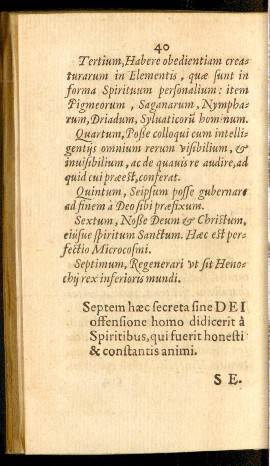 40
Tertium, Habere obedientiam crea-
turarum in Elementis, quæ sunt in
forma Spirituum personalium: item
Pigmeorum, Saganarum, Nympha-
rum, Driadum, Syluaticorũ hominum.
Quartum, Posse colloqui cum intelli-
gentijs omnium rerum visibilium, &
inuisibilium, ac de quauis re audire, ad
quid cui præest, conferat.
Quintum, Seipsum posse gubernare
ad finem à Deo sibi præfixum.
Sextum, Nosse Deum & Christum,
eiusue spiritum Sanctum. Hæc est per-
fectio Microcosmi.
Septimum, Regenerari vt sit Heno-
chij rex inferioris mundi.
Septem hæc secreta sine DEI
offensione homo didicerit à
Spiritibus, qui fuerit honesti
& constantis animi.
SE.